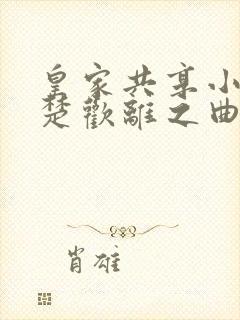 皇家共享小
楚歡離之曲
肖雄